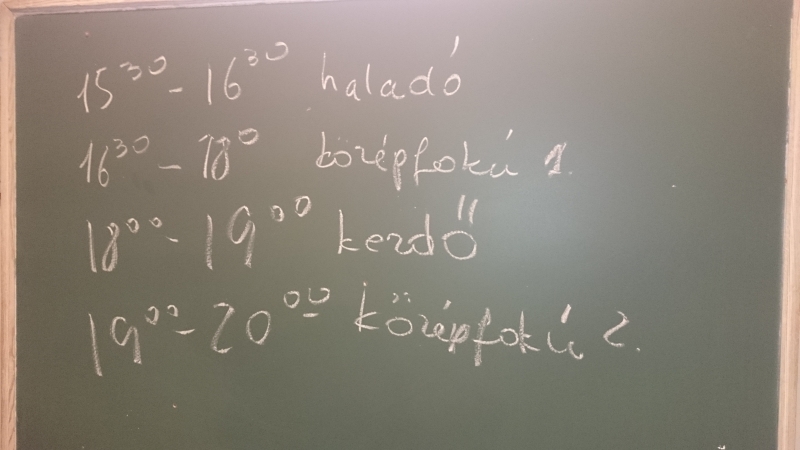 15³⁰ - 16³⁰ haladó
16³⁰ - 18⁰ középfokú 1.
18⁰⁰ - 19⁰⁰ kezdő
19⁰⁰ - 20⁰⁰ középfokú 2.